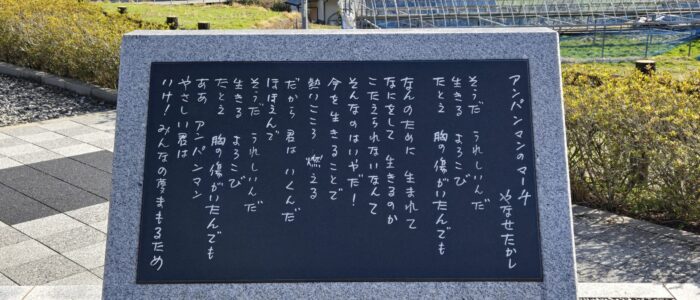 アンパンマンのマーチ
やなせたかし
そうだ うれしいんだ
生きる よろこび
たとえ 胸の傷がいたんでも
なんのために 生まれて
なにをして 生きるのか
こたえられないなんて
そんなのはいやだ!
今を生きることで
熱いこころ 燃える
だから 君は いくんだ
ほほえんで
そうだ うれしいんだ
生きる よろこび
たとえ 胸の傷がいたんでも
ああ アンパンマン
やさしい 君は
いけ! みんなの夢まもるため